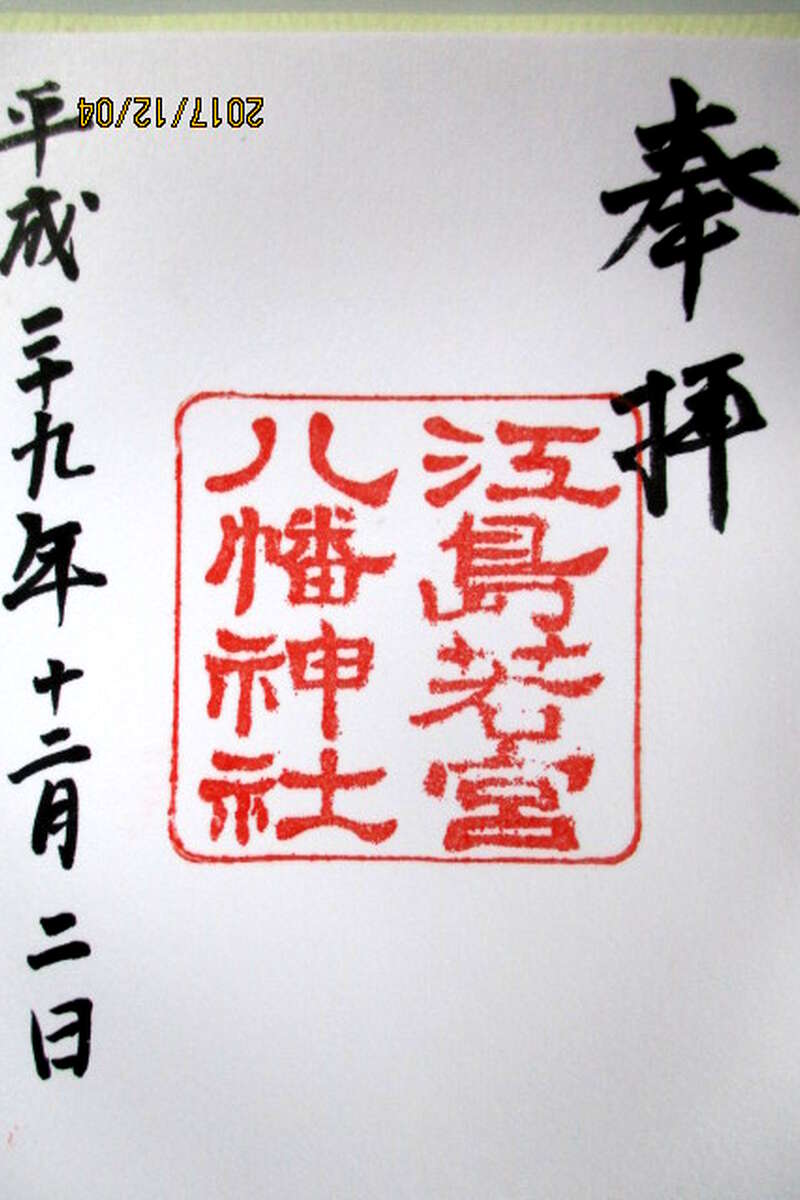 奉拝
江島若宮
八幡神社
平成二十九年十二月二日
2017/12/04